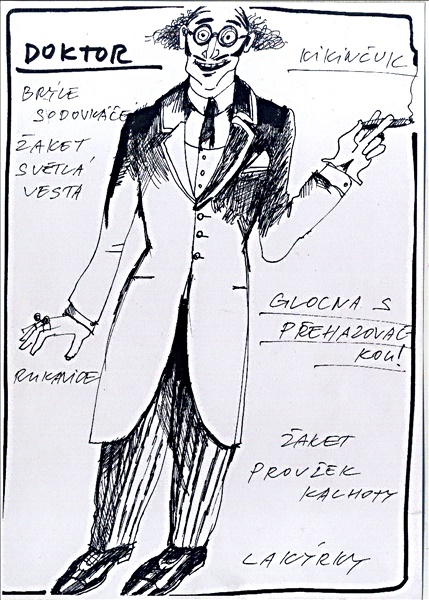 DOKTOR
KIKINČUK
BRÝLE
SODOVKÁČE
ŽAKET
SVĚTLÁ
VESTA
GLOCNA S
PŘEHAZOVAČ
KOU!
RUKAVICE
ŽAKET
PROUŽEK
KALHOTY
LAKÝRKY